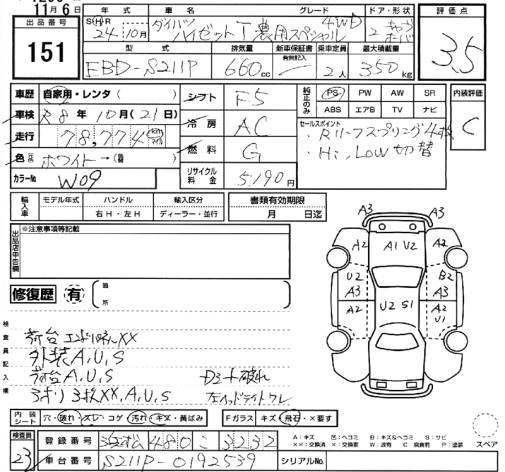 11月6日
出品番号
151
年式
車名
グレード
ドア・形状
評価点
S(H)R
24年10月
ダイハツ
ハイゼットT 農用スペシャル 4WD
2
3.5
型式
排気量
新車保証書
乗車定員
最大積載量
EBD-S211P
660cc
有無記入
2人
350kg
車歴 自家用・レンタ( )
シフト F5
純正のみ
PS PW AW SR
ABS エアB TV ナビ
内装評価
C
車検 R8年10月(21日)
冷房 AC
セールスポイント
・Rリーフスプリング4枚
・Hi, Low切替
走行 78,774km
燃料 G
色 ホワイト→( )
カラーNo W09
リサイクル料金 5,190円
輸入車
モデル年式 ハンドル 輸入区分
右H・左H ディーラー・並行
書類有効期限
月 日迄
※注意事項等記載
出品店申告欄
修復歴 有
箇所
A3 A3
A2 A1 U2 A2
U2 B2
A3 A3
A2 U2 S1 A2
U1
A3 A3
検査員記入欄
外装A,U,S
荷台A,U,S
3方リ3枚XX,A,U,S
内装シート
穴・破れ・スレ・コゲ・汚れ・キズ・黄ばみ
Fガラス
キズ・飛石・×要す
A:キズ
U:凹
B:キズ&ヘコミ
S:サビ
XX:交換済
X:要交換
W:波有
C:腐食有
P:塗装
スペア
検査員
23
登録番号
480 こ 3232
車台番号 S211P-0192539
シリアルNo.